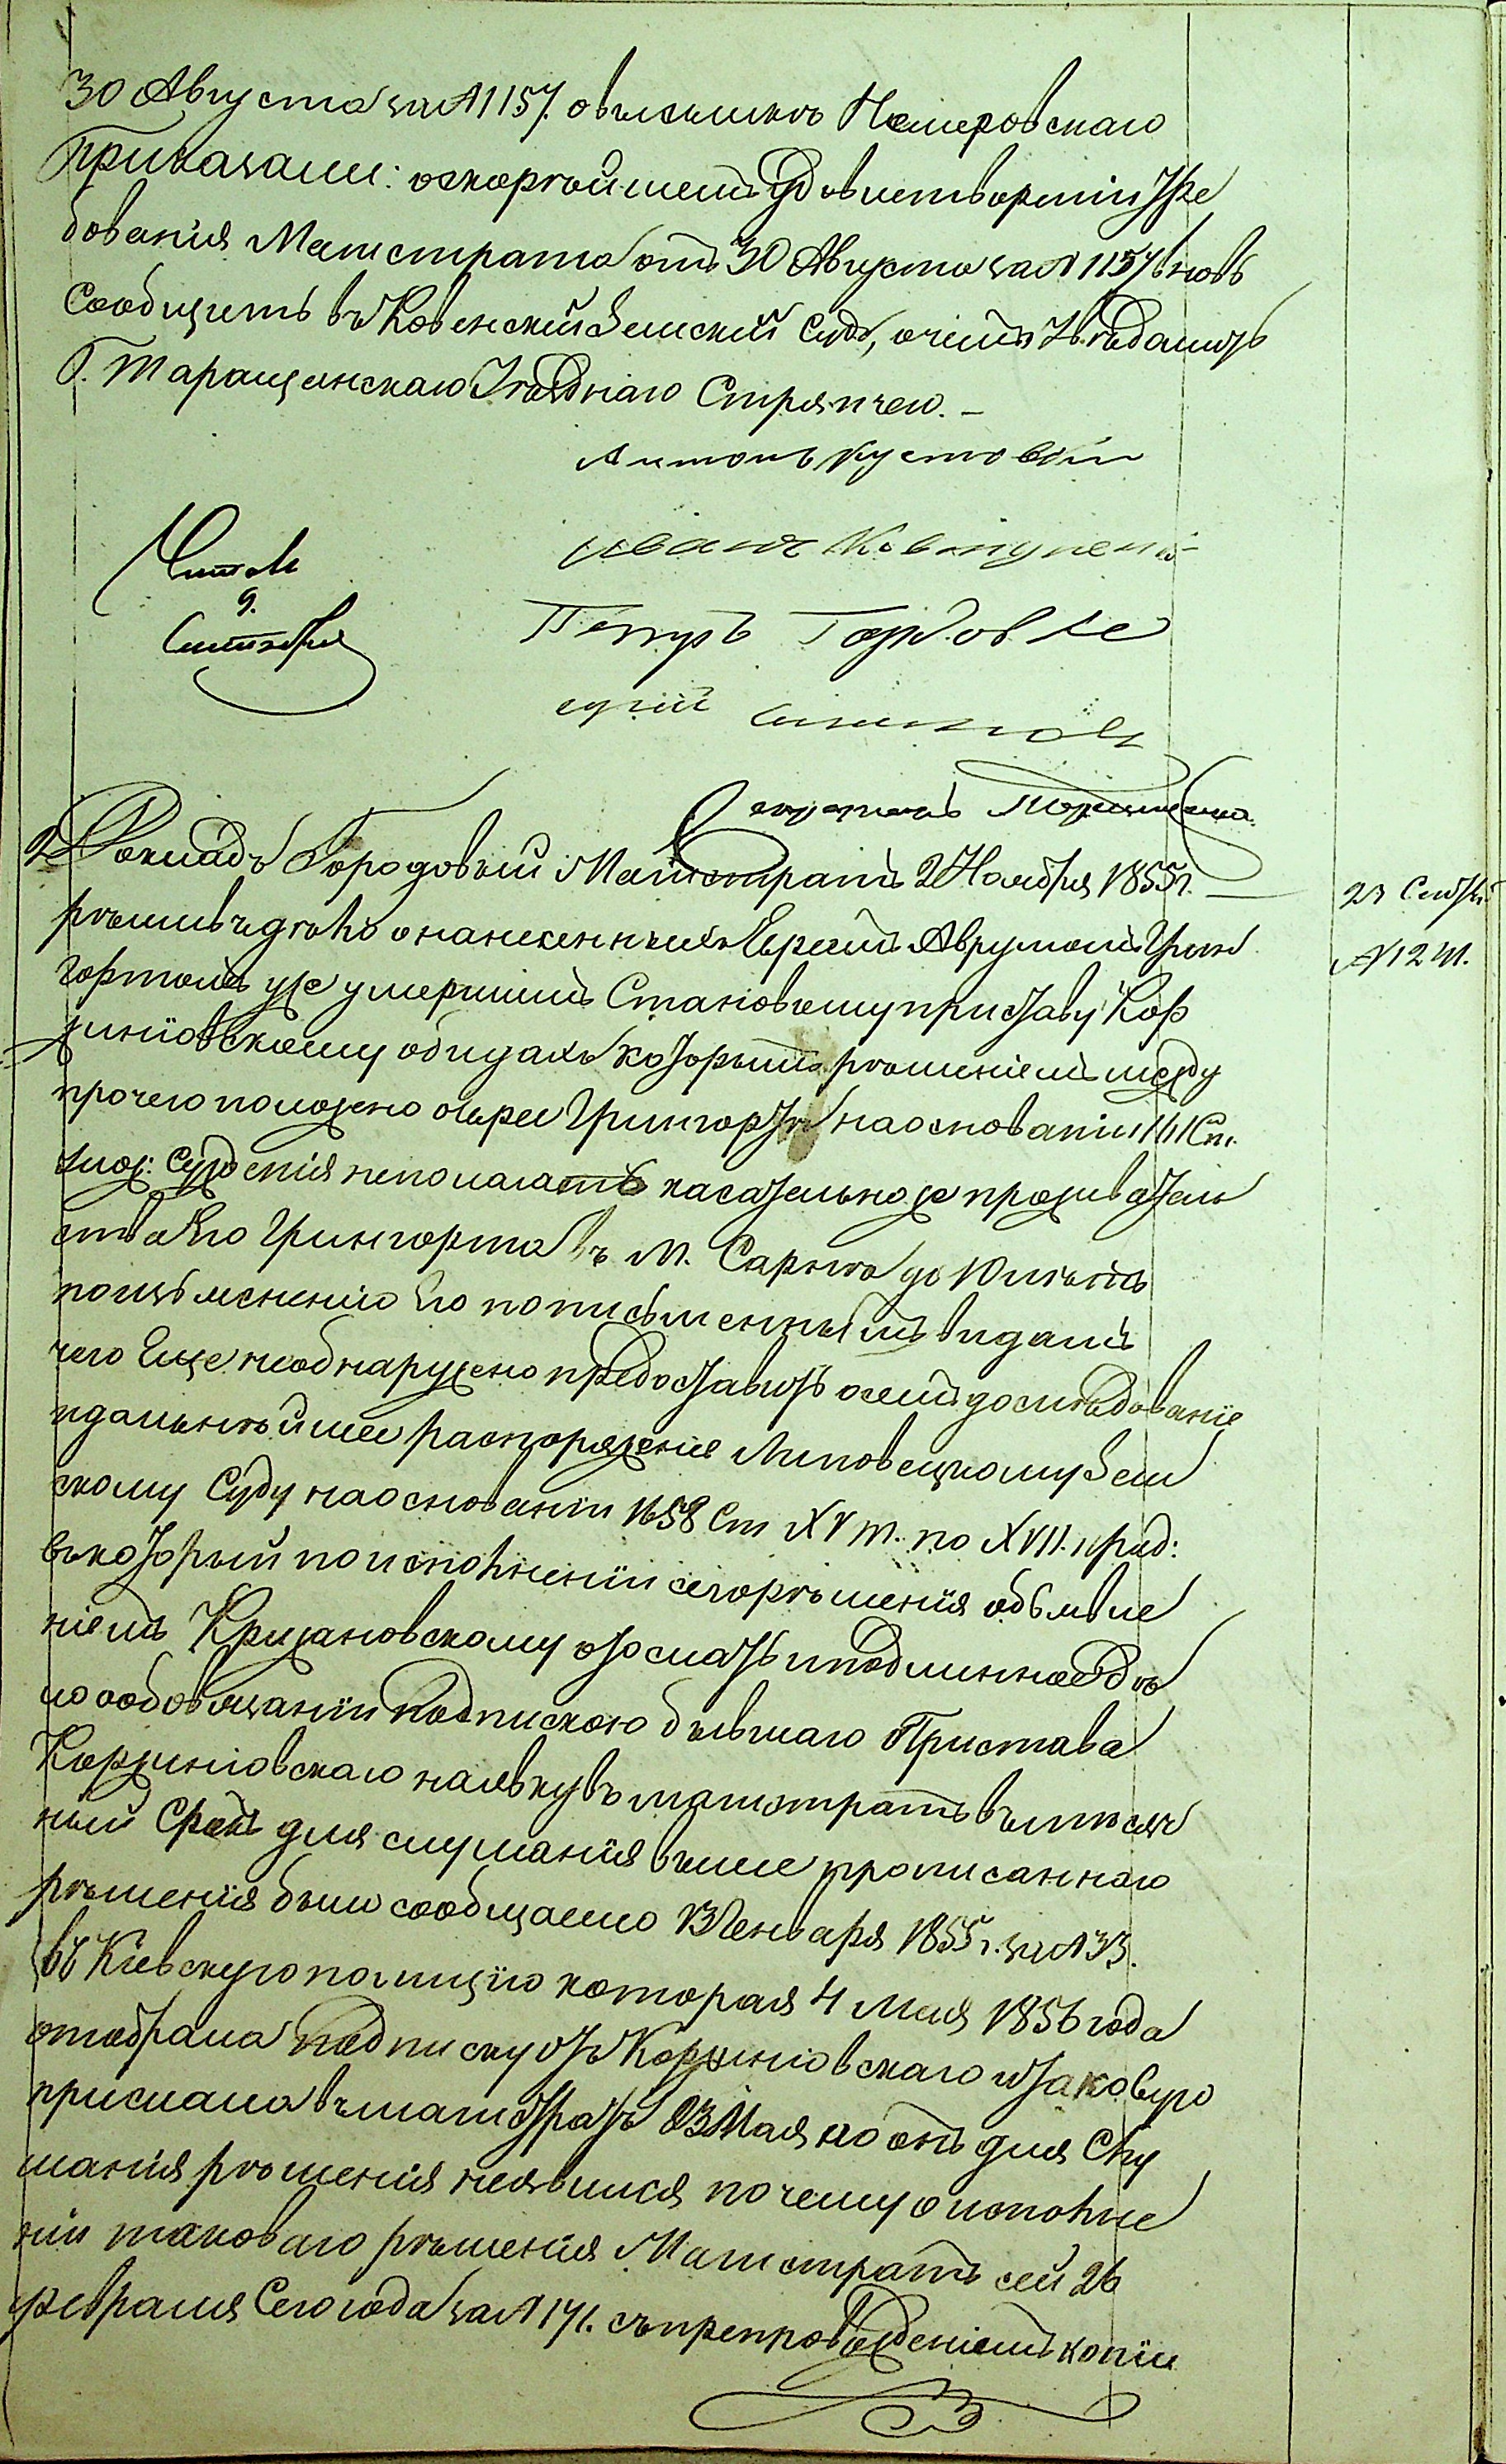 30 Августа за № 1157. о высылкъ Немеровскаго
Приказали: о скорѣйшемъ удовлетвореніи тре
бованія Магистрата отъ 30 Августа за № 1157 вновь
сообщить въ Ковенскій Земскій судъ, о чемъ и увѣдомить
Г. Таращанскаго Уѣзднаго Стряпчего. -
Антонъ Кустовскій
Иванъ
Петръ
Читалъ
9.
Сентября
Секретарь
2 Докладъ Городовый Магистратъ 2 Ноября 1855 г.
рѣшивъ дѣло о нанесенныхъ Евреемъ Аврумомъ Грин
гортомъ уже умершимъ Становому приставу Кор
жиніовскому обидахъ которымъ рѣшеніемъ между
прочего положено о Еврее Грингортѣ на основаніи 111 Ст.
улож: сужденія неполагать касательно же проживатель
ства Его Грингорта въ М. Сарнѣ до
по письменнымъ видамъ
чего Еще необнаружено предоставить о семъ дослѣдованіе
и дальнѣйшее распоряженіе Липовецкому Зем
скому Суду на основаніи 1658 Ст XV т. по XVII. прод:
въ который по исполненіи сего рѣшенія объявле
ніемъ Кржановскому отослать и подлинное дѣ
ло о обовязаніи подпискою бывшаго Пристава
Коржиніовскаго на явку въ магистратъ въ мѣсяч
ный срокъ для слушанія выше прописаннаго
рѣшенія было сообщаемо 13 Генваря 1855 г. за № 33.
въ Кіевскую полицію которая 4 Мая 1856 года
отобрала подписку отъ Коржиніовскаго и таковую
прислала въ магистратъ 23 Мая но онъ для слу
шанія рѣшенія неявился почему о исполне
ніи таковаго рѣшенія Магистратъ сей 26
февраля Сего года за № 171. съ препровожденіемъ копіи
23 Сентября
№ 12